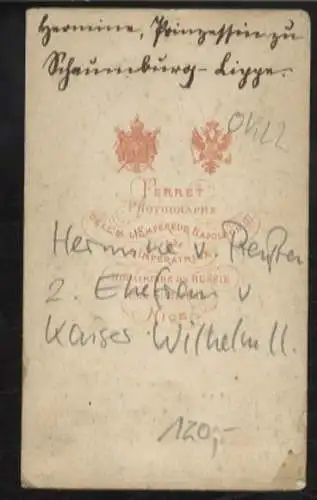 Hermine, Prinzessin zu
Schaumburg-Lippe.
04122
PERRET
PHOTOGRAPHE
DE S.M. L'EMPEREUR NAPOLEON III
L'IMPERATRICE
DE RUSSIE
NICE
Hermine v. Reuß
2. Ehefrau v
Kaiser Wilhelm II.
120,-